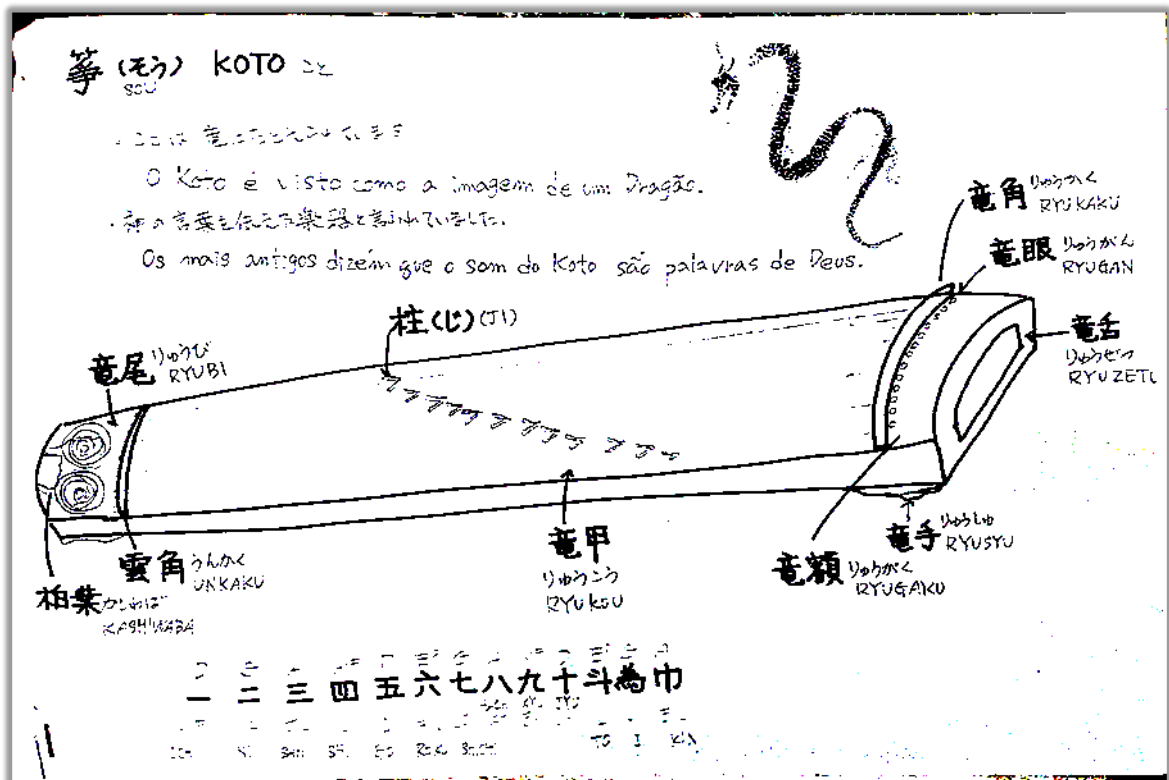 箏 (そう) KOTO こと
SOU
O Koto é visto como a imagem de um Dragão.
・神の言葉を伝える楽器と言われていました.
Os mais antigos dizem que o som do Koto são palavras de Deus.
竜角 りゅうかく
RYUKAKU
竜眼 りゅうがん
RYUGAN
柱(じ)(JI)
竜舌
りゅうぜつ
RYUZETU
竜尾 りゅうび
RYUBI
竜手 りゅうしゅ
RYUSYU
竜額 りゅうがく
RYUGAKU
竜甲
りゅうこう
RYUKOU
雲角 うんかく
UNKAKU
柏葉 かしわば
KASHIWABA
一 二 三 四 五 六 七 八 九 十 斗 為 巾
NI SAN GO ROKU TO I KIN